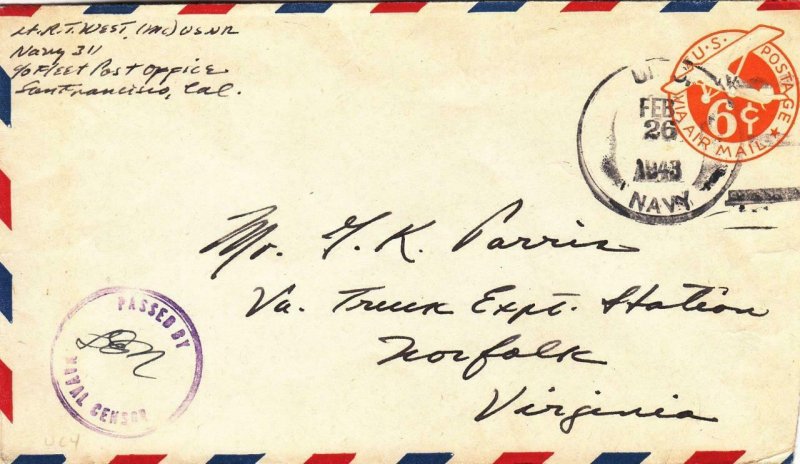 Lt. R. T. WEST. (MC) USNR
Navy 311
c/o Fleet Post Office
San Francisco, Cal.
U.S. POSTAGE
6¢
VIA AIR MAIL
FEB
26
1943
NAVY
Mr. G. K. Parris
Va. Truck Expt. Station
Norfolk
Virginia
PASSED BY
NAVAL CENSOR
UC4